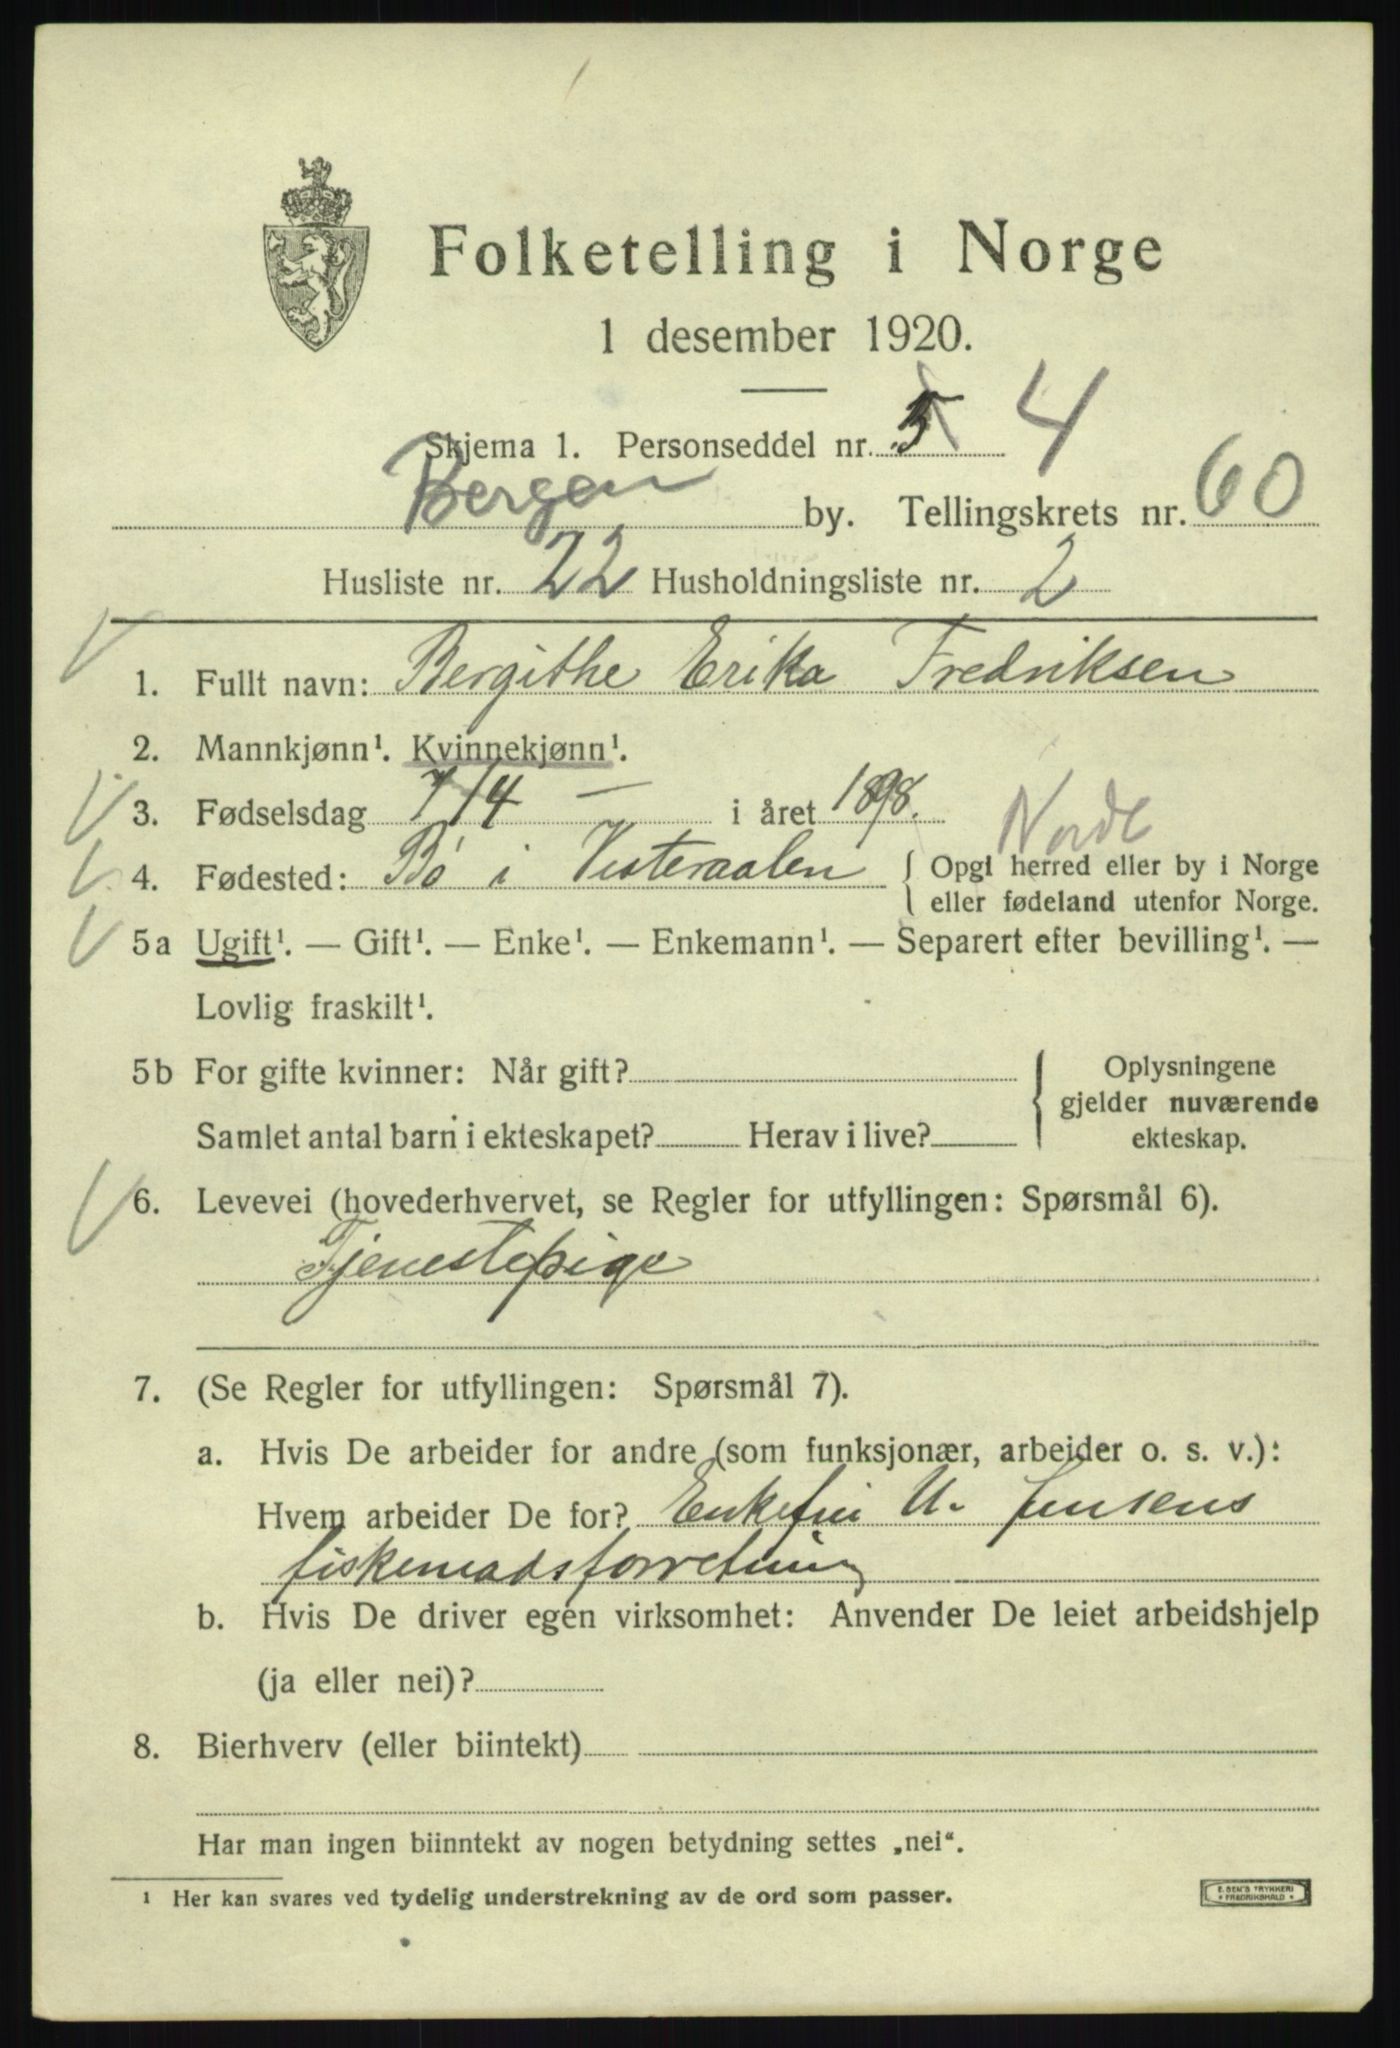 Folketelling i Norge
1 desember 1920.
Skjema 1. Personseddel nr. 4
Bergen by. Tellingskrets nr. 60
Husliste nr. 22 Husholdningsliste nr. 2
1. Fullt navn: Bergithe Erika Fredriksen
2. Mannkjønn¹. Kvinnekjønn¹.
3. Fødselsdag 7/4 — i året 1898.
Nordl
4. Fødested: Bö i Vesteraalen { Opgi herred eller by i Norge
eller fødeland utenfor Norge.
5a Ugift¹. — Gift¹. — Enke¹. — Enkemann¹. — Separert efter bevilling¹. —
Lovlig fraskilt¹.
5b For gifte kvinner: Når gift? { Oplysningene
gjelder nuværende
Samlet antal barn i ekteskapet? Herav i live? ekteskap.
6. Levevei (hovederhvervet, se Regler for utfyllingen: Spørsmål 6).
Tjenestepige
7. (Se Regler for utfyllingen: Spørsmål 7).
a. Hvis De arbeider for andre (som funksjonær, arbeider o. s. v.):
Hvem arbeider De for? Enkefru U. Jensens
fiskemadsforretning
b. Hvis De driver egen virksomhet: Anvender De leiet arbeidshjelp
(ja eller nei)?
8. Bierhverv (eller biintekt) —
Har man ingen biinntekt av nogen betydning settes „nei“.
¹ Her kan svares ved tydelig understrekning av de ord som passer.
E. SEM'S TRYKKERI
* FREDRIKSHALD *